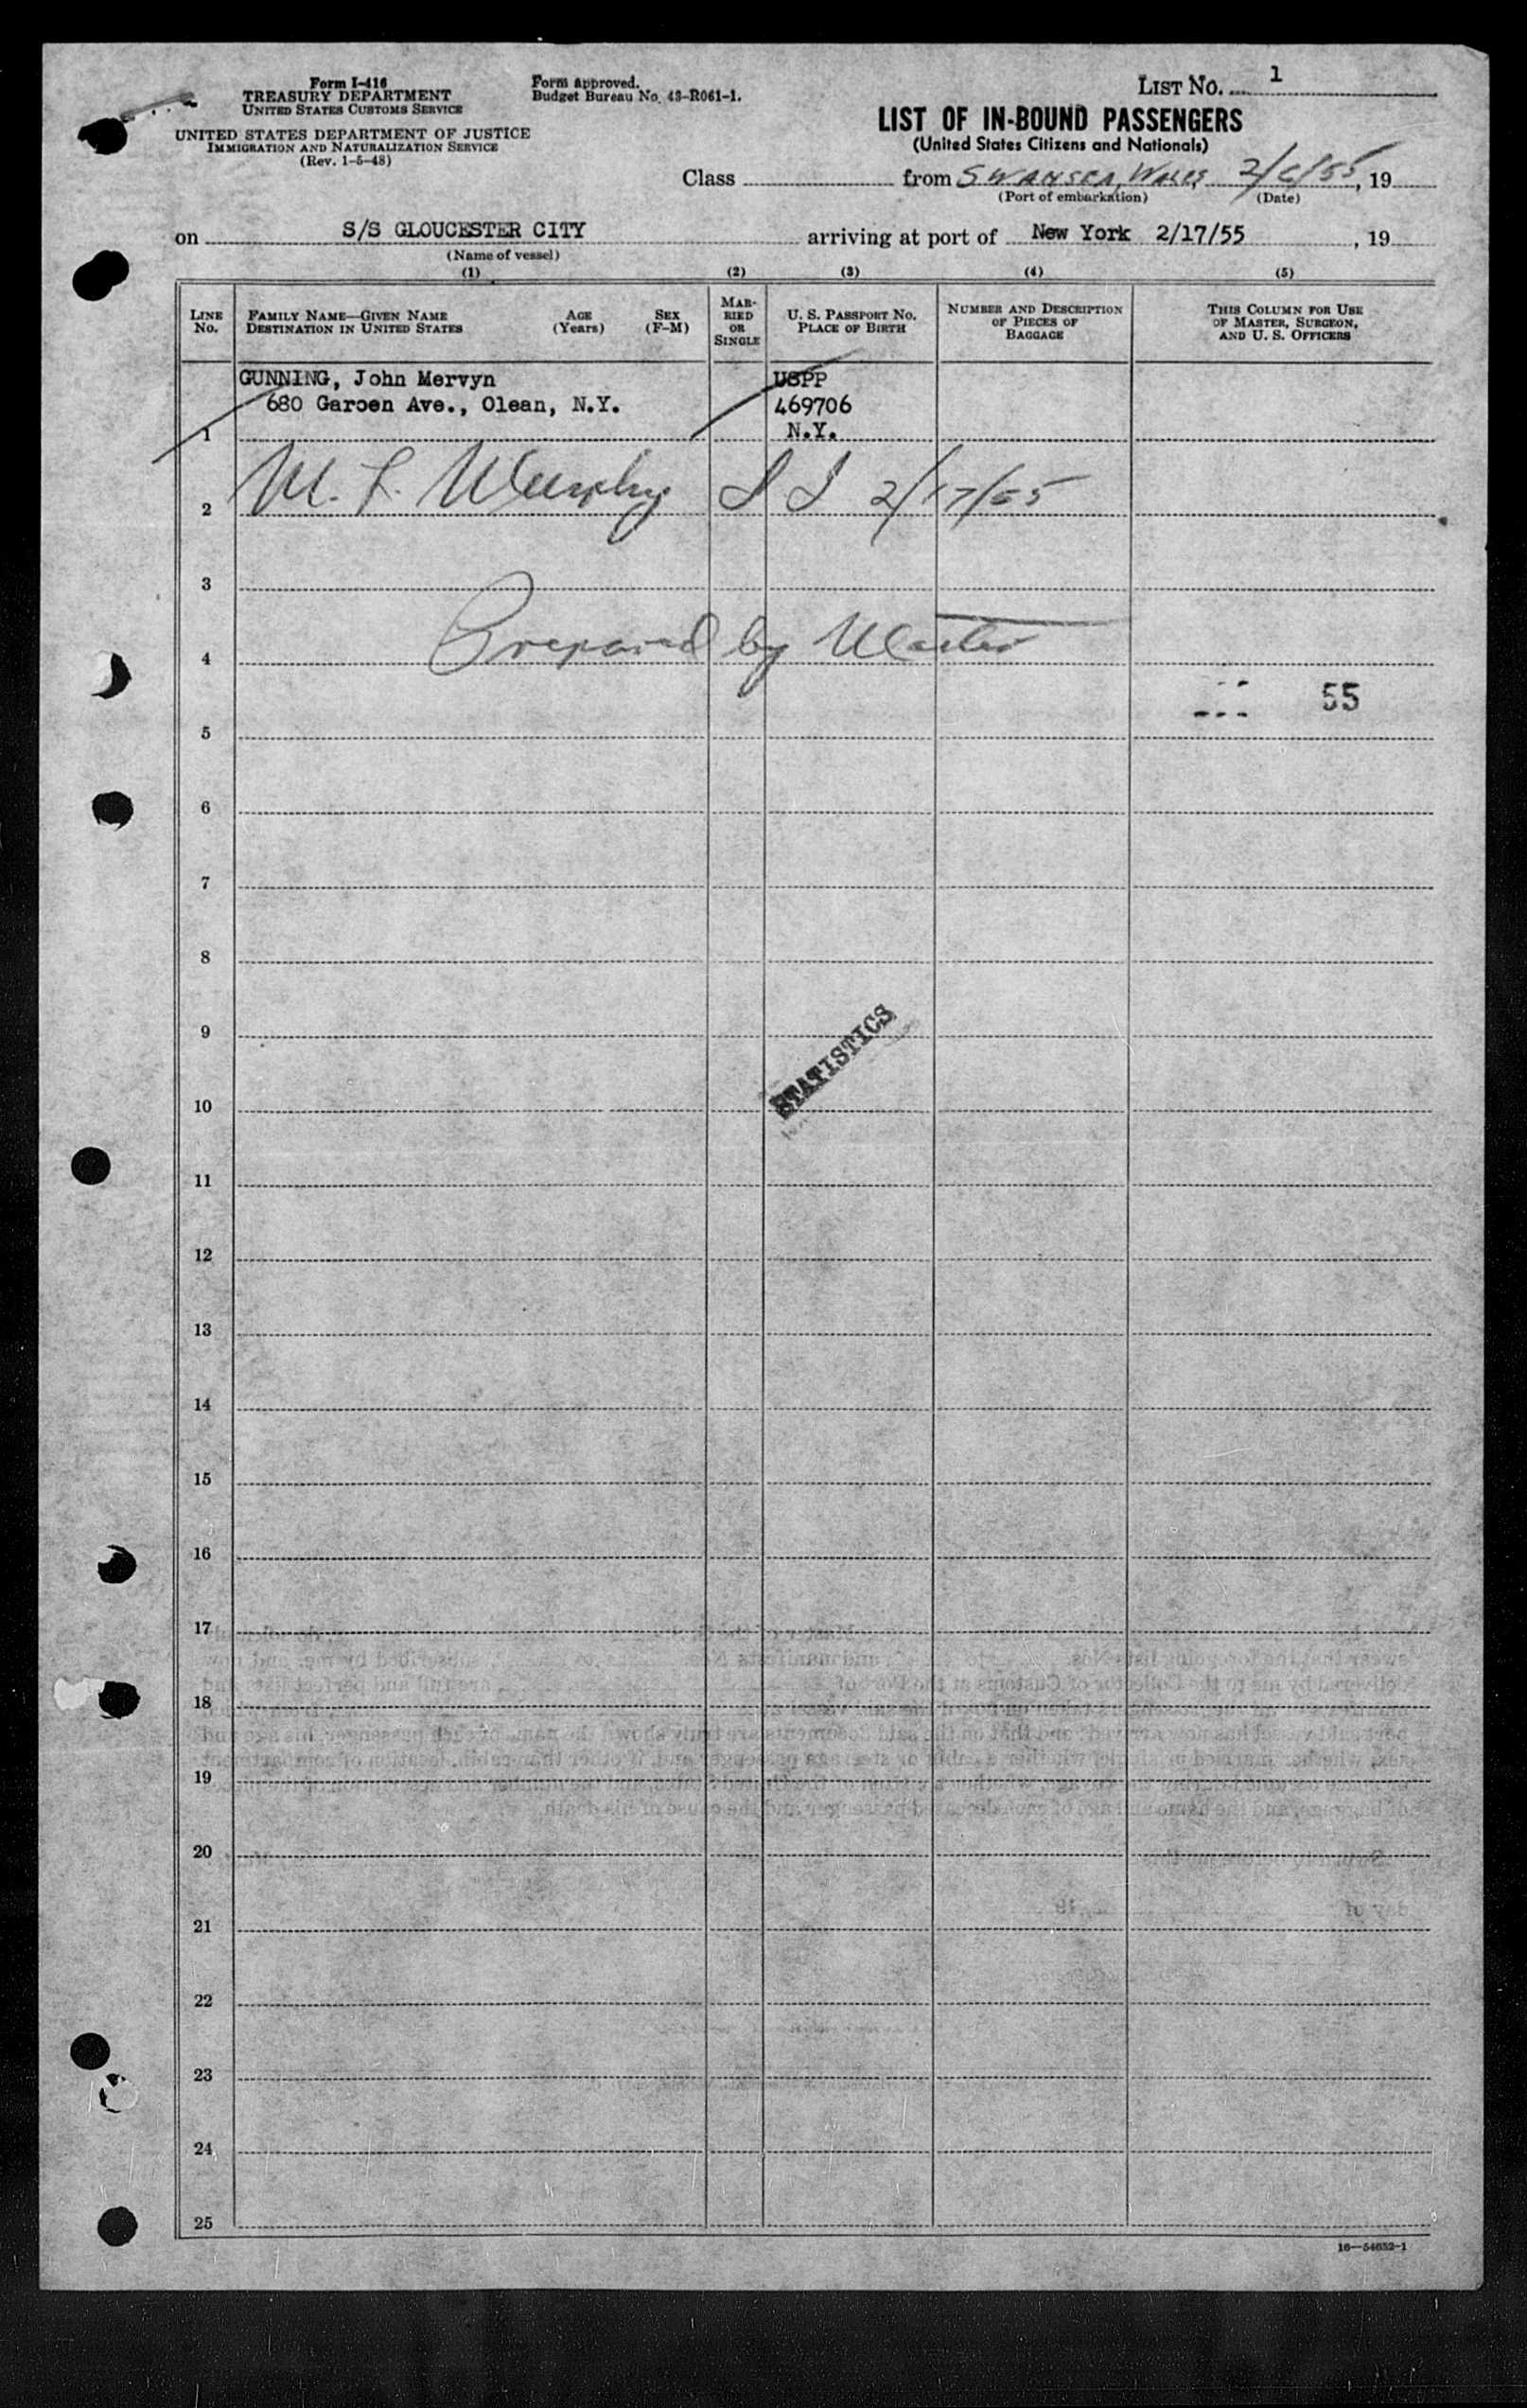 Form I-416
TREASURY DEPARTMENT
UNITED STATES CUSTOMS SERVICE
UNITED STATES DEPARTMENT OF JUSTICE
IMMIGRATION AND NATURALIZATION SERVICE
(Rev. 1-5-48)
Form Approved.
Budget Bureau No. 43-R061-1.
LIST NO. 1
LIST OF IN-BOUND PASSENGERS
(United States Citizens and Nationals)
Class from SWANSEA, WALES 2/6/55, 19
(Port of embarkation) (Date)
on S/S GLOUCESTER CITY arriving at port of New York 2/17/55, 19
(Name of vessel)
(1) (2) (3) (4) (5)
LINE NO.
FAMILY NAME—GIVEN NAME
DESTINATION IN UNITED STATES
AGE (Years)
SEX (F-M)
MARRIED OR SINGLE
U. S. PASSPORT NO.
PLACE OF BIRTH
NUMBER AND DESCRIPTION
OF PIECES OF
BAGGAGE
THIS COLUMN FOR USE
OF MASTER, SURGEON,
AND U. S. OFFICERS
GUNNING, John Mervyn USPP
680 Garoen Ave., Olean, N.Y. 469706
1 N.Y.
2 M. F. Murphy I I 2/17/55
3
4 Prepared by Master
55
5
6
7
8
9
STATISTICS
10
11
12
13
14
15
16
17
18
19
20
21
22
23
24
25
16—54652-1